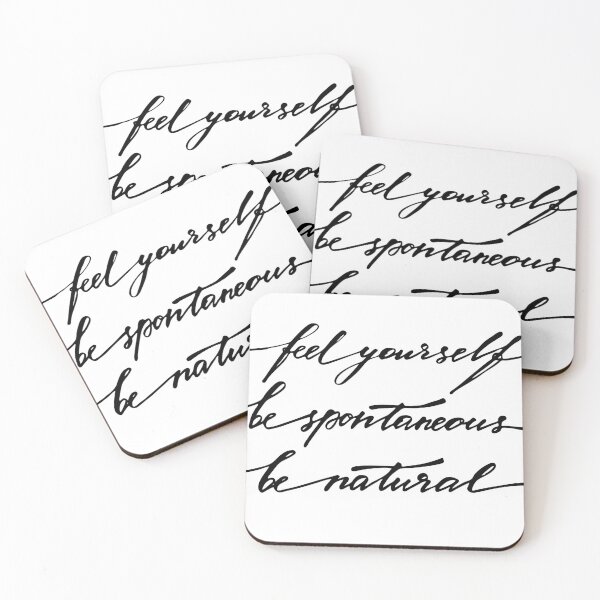 feel yourself
be
feel yourself
be spontaneous
be natural
feel yourself
be spontaneous
be natura
feel yourself
be spontaneous
be natural